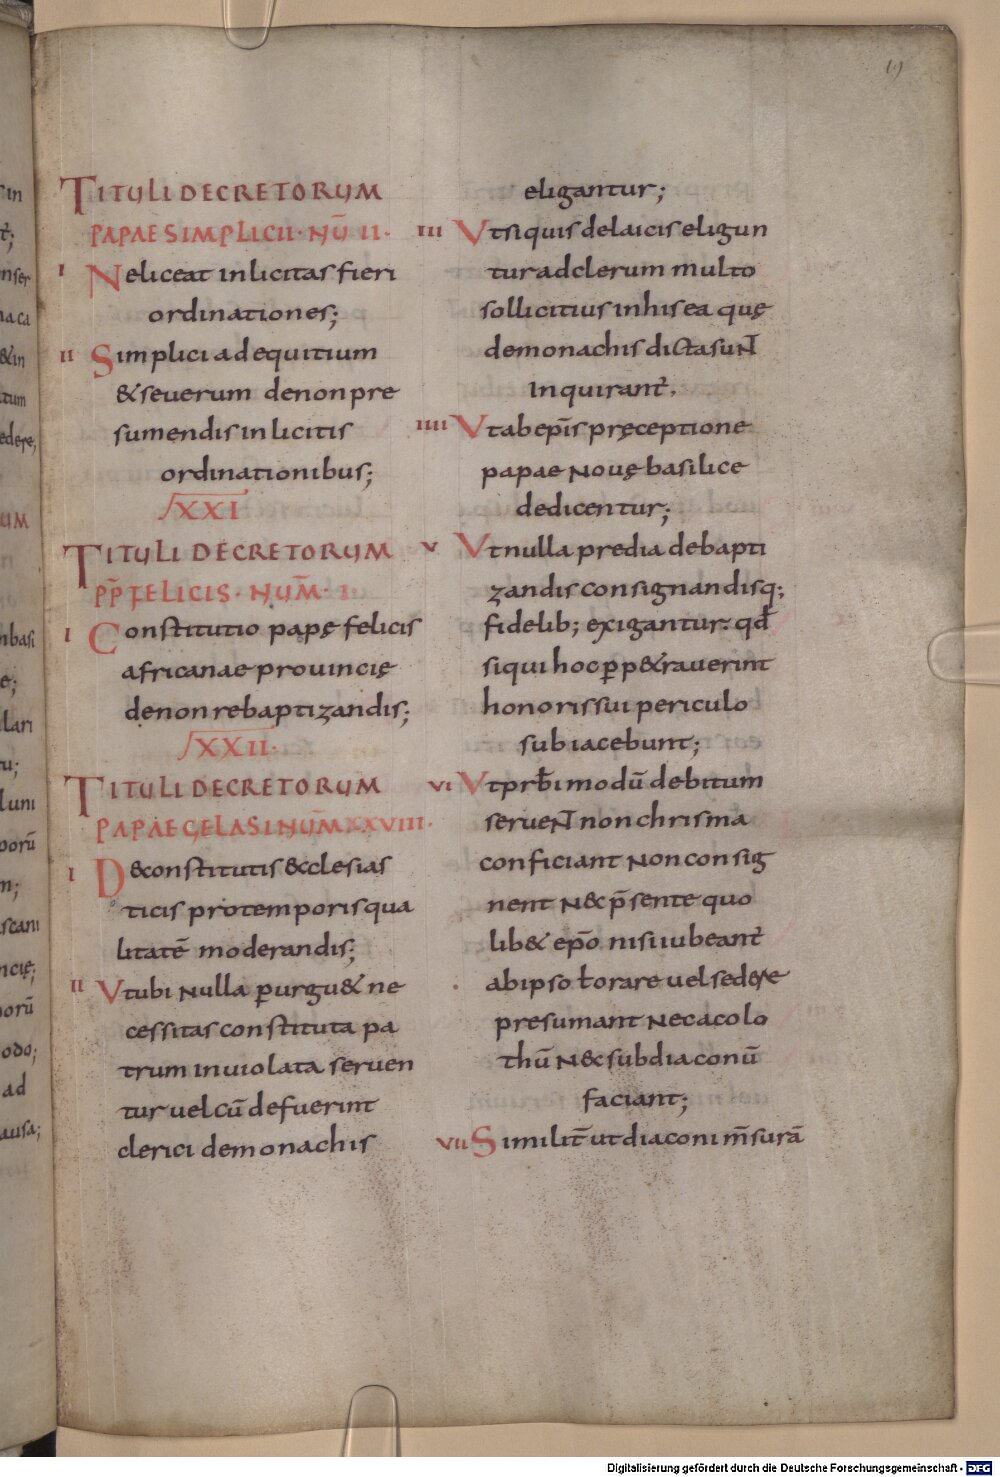 19
TITULI DECRETORUM
PAPAE SIMPLICII · NŪ II ·
I Ne liceat inlicitas fieri
ordinationes;
II Simplicii ad equitium
& seuerum de non pre
sumendis inlicitis
ordinationibus;
XXI
TITULI DECRETORUM
PP̄ FELICIS · NUM̄ · I
I Constitutio papę felicis
africanae prouincię
de non rebaptizandis;
XXII ·
TITULI DECRETORUM
PAPAE GELASI NUM̄ XXVIII ·
I D& constitutis &cclesias
ticis pro temporis qua
litatē moderandis;
II Ut ubi nulla ꝑurgu& ne
cessitas constituta pa
trum inuiolata seruen
tur uel cū defuerint
clerici de monachis
eligantur;
III Ut si quis de laicis eligun
tur ad clerum multo
sollicitius in his ea quę
de monachis dicta sunt
inquirant̄.
IIII Ut ab ep̄is pręceptione
papae nouę basilice
dedicentur;
V Ut nulla predia de bapti
zandis consignandisq;
fidelib; exigantur. qd̄
si qui hoc ꝑp&rauerint
honoris sui periculo
subiacebunt;
VI Ut prb̄i modū debitum
seruent non chrisma
conficiant non consig
nent n&c p̄sente quo
lib& ep̄o nisi iubeant̄
ab ipso t̄ orare uel sedere
presumant nec acolo
thū n&c subdiaconū
faciant;
VII Similit̄ ut diaconi m̄surā
Digitalisierung gefördert durch die Deutsche Forschungsgemeinschaft - DFG